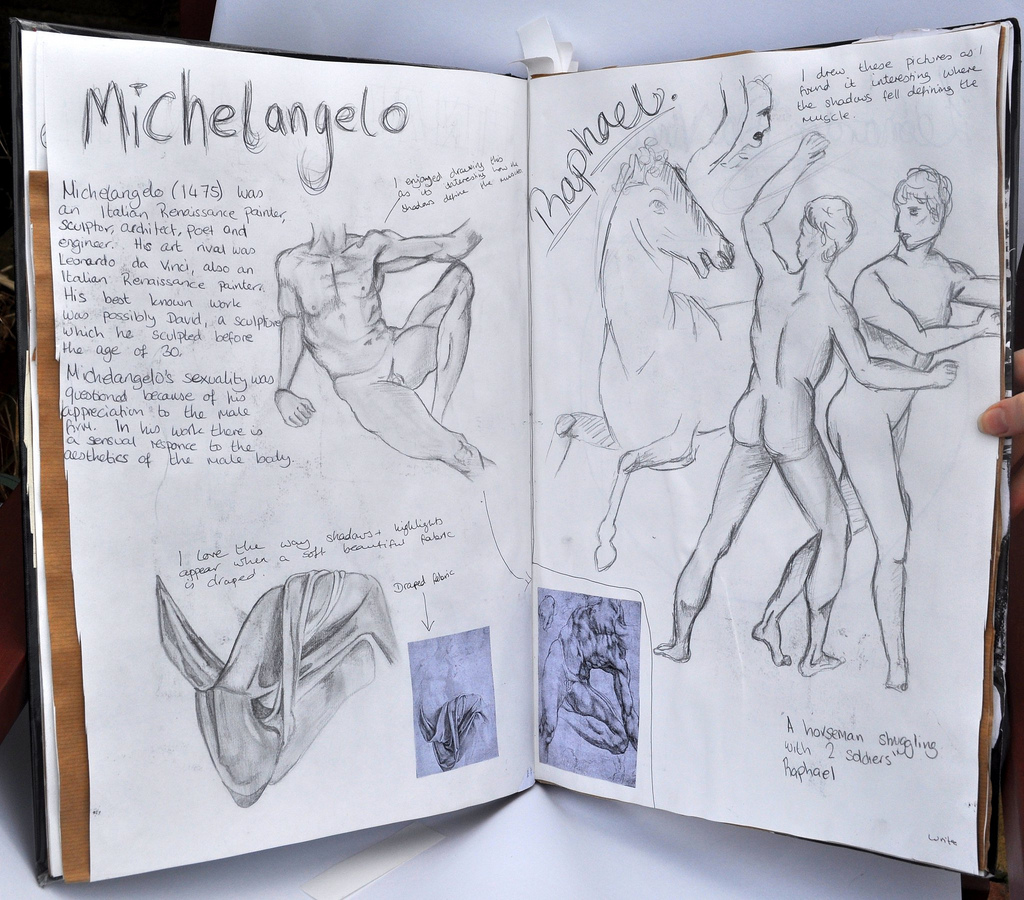 Michelangelo
Michelangelo (1475) was
an Italian Renaissance painter,
sculptor, architect, poet and
engineer. His art rival was
Leonardo da Vinci, also an
Italian Renaissance painter.
His best known work
was possibly David, a sculpture
which he sculpted before
the age of 30.
Michelangelo's sexuality was
questioned because of his
appreciation to the male
firm. In his work there is
a sensual response to the
aesthetics of the male body.
I enjoyed drawing this
as its interesting how the
shadows define the muscle
I love the way shadows + highlights
appear when a soft beautiful fabric
is draped.
Draped fabric
Raphael.
I drew these pictures as I
found it interesting where
the shadows fell defining the
muscle.
A horseman struggling
with 2 soldiers"
Raphael
Write